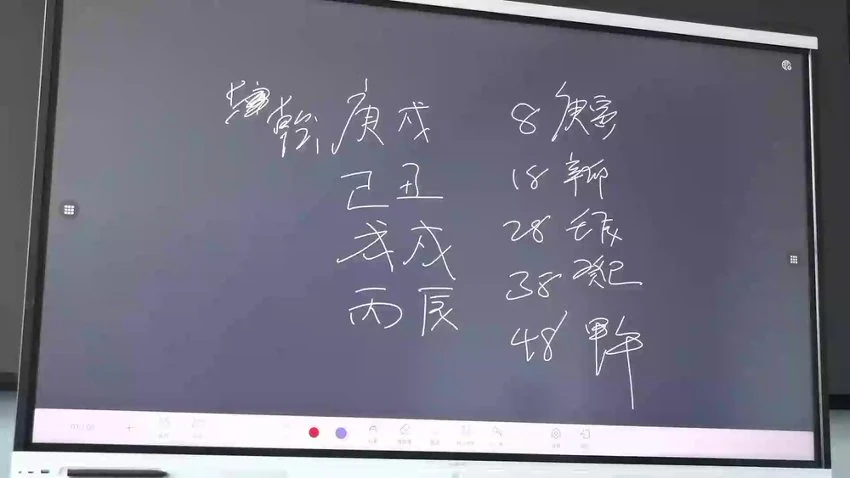 乾 庚戌
己丑
戊戌
丙辰
8 庚寅
18 辛卯
28 壬辰
38 癸巳
48 甲午